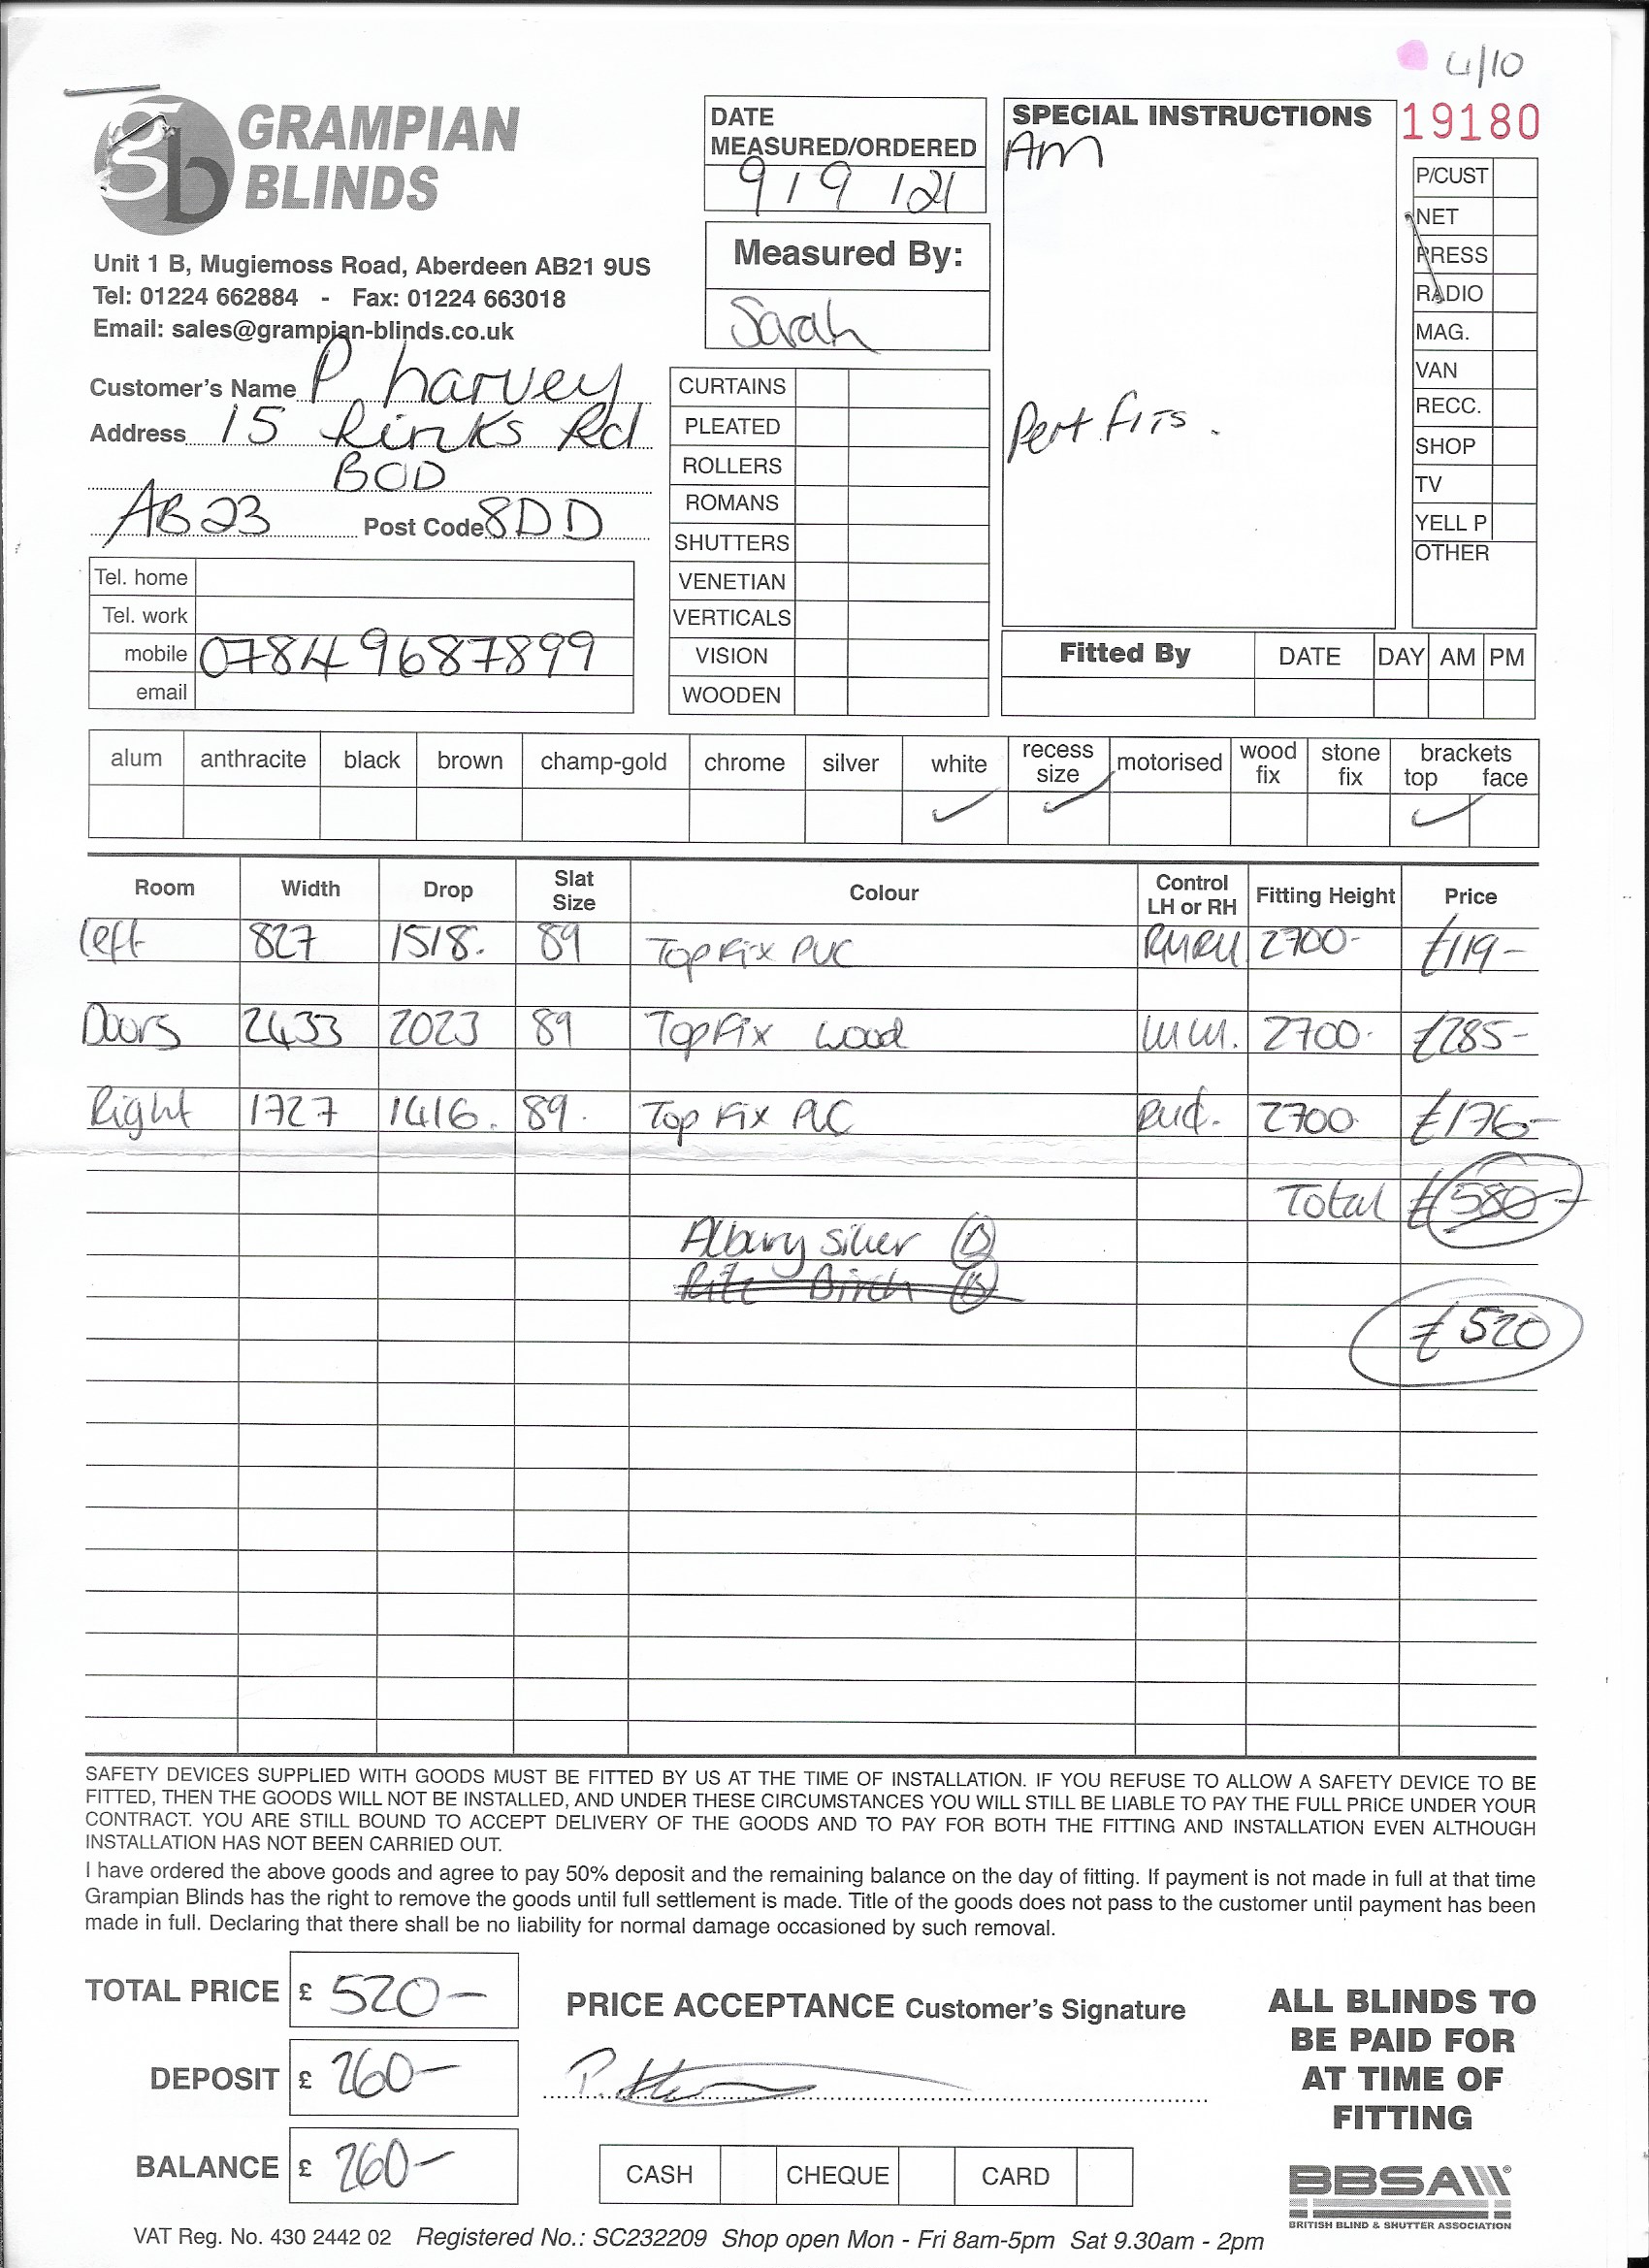 4/10
GRAMPIAN
BLINDS
gb
Unit 1 B, Mugiemoss Road, Aberdeen AB21 9US
Tel: 01224 662884 - Fax: 01224 663018
Email: sales@grampian-blinds.co.uk
DATE
MEASURED/ORDERED
9/9/21
Measured By:
Sarah
SPECIAL INSTRUCTIONS
Am
Perf fits.
19180
P/CUST
NET
PRESS
RADIO
MAG.
VAN
RECC.
SHOP
TV
YELL P
OTHER
Customer's Name P harvey
Address 15 links Rd
BOD
AB23 Post Code 8DD
Tel. home
Tel. work
mobile 07849687899
email
CURTAINS
PLEATED
ROLLERS
ROMANS
SHUTTERS
VENETIAN
VERTICALS
VISION
WOODEN
Fitted By DATE DAY AM PM
alum anthracite black brown champ-gold chrome silver white recess size motorised wood fix stone fix brackets top face
Room Width Drop Slat Size Colour Control LH or RH Fitting Height Price
Left 827 1518. 89 Top Fix PVC 2700- £119-
Doors 2433 2023 89 Top Fix wood 2700- £285-
Right 1727 1416. 89. Top Fix PVC 2700- £176-
Total £580-
Albury Silver B
Birch B
£520
SAFETY DEVICES SUPPLIED WITH GOODS MUST BE FITTED BY US AT THE TIME OF INSTALLATION. IF YOU REFUSE TO ALLOW A SAFETY DEVICE TO BE
FITTED, THEN THE GOODS WILL NOT BE INSTALLED, AND UNDER THESE CIRCUMSTANCES YOU WILL STILL BE LIABLE TO PAY THE FULL PRICE UNDER YOUR
CONTRACT. YOU ARE STILL BOUND TO ACCEPT DELIVERY OF THE GOODS AND TO PAY FOR BOTH THE FITTING AND INSTALLATION EVEN ALTHOUGH
INSTALLATION HAS NOT BEEN CARRIED OUT.
I have ordered the above goods and agree to pay 50% deposit and the remaining balance on the day of fitting. If payment is not made in full at that time
Grampian Blinds has the right to remove the goods until full settlement is made. Title of the goods does not pass to the customer until payment has been
made in full. Declaring that there shall be no liability for normal damage occasioned by such removal.
TOTAL PRICE £ 520-
DEPOSIT £ 260-
BALANCE £ 260-
PRICE ACCEPTANCE Customer's Signature
CASH CHEQUE CARD
ALL BLINDS TO
BE PAID FOR
AT TIME OF
FITTING
BBSA
BRITISH BLIND & SHUTTER ASSOCIATION
VAT Reg. No. 430 2442 02 Registered No.: SC232209 Shop open Mon - Fri 8am-5pm Sat 9.30am - 2pm